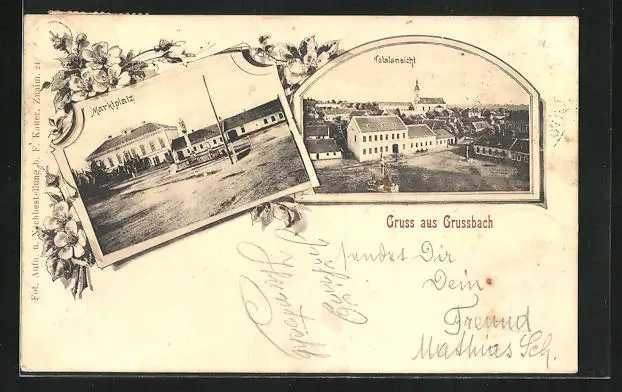 Marktplatz
Totalansicht
Gruss aus Grussbach
Fot. Aufn. u. Nachbestellung b. F. Kauer, Znaim. 24
sendet Dir
Dein
Freund
Mathias Sch.